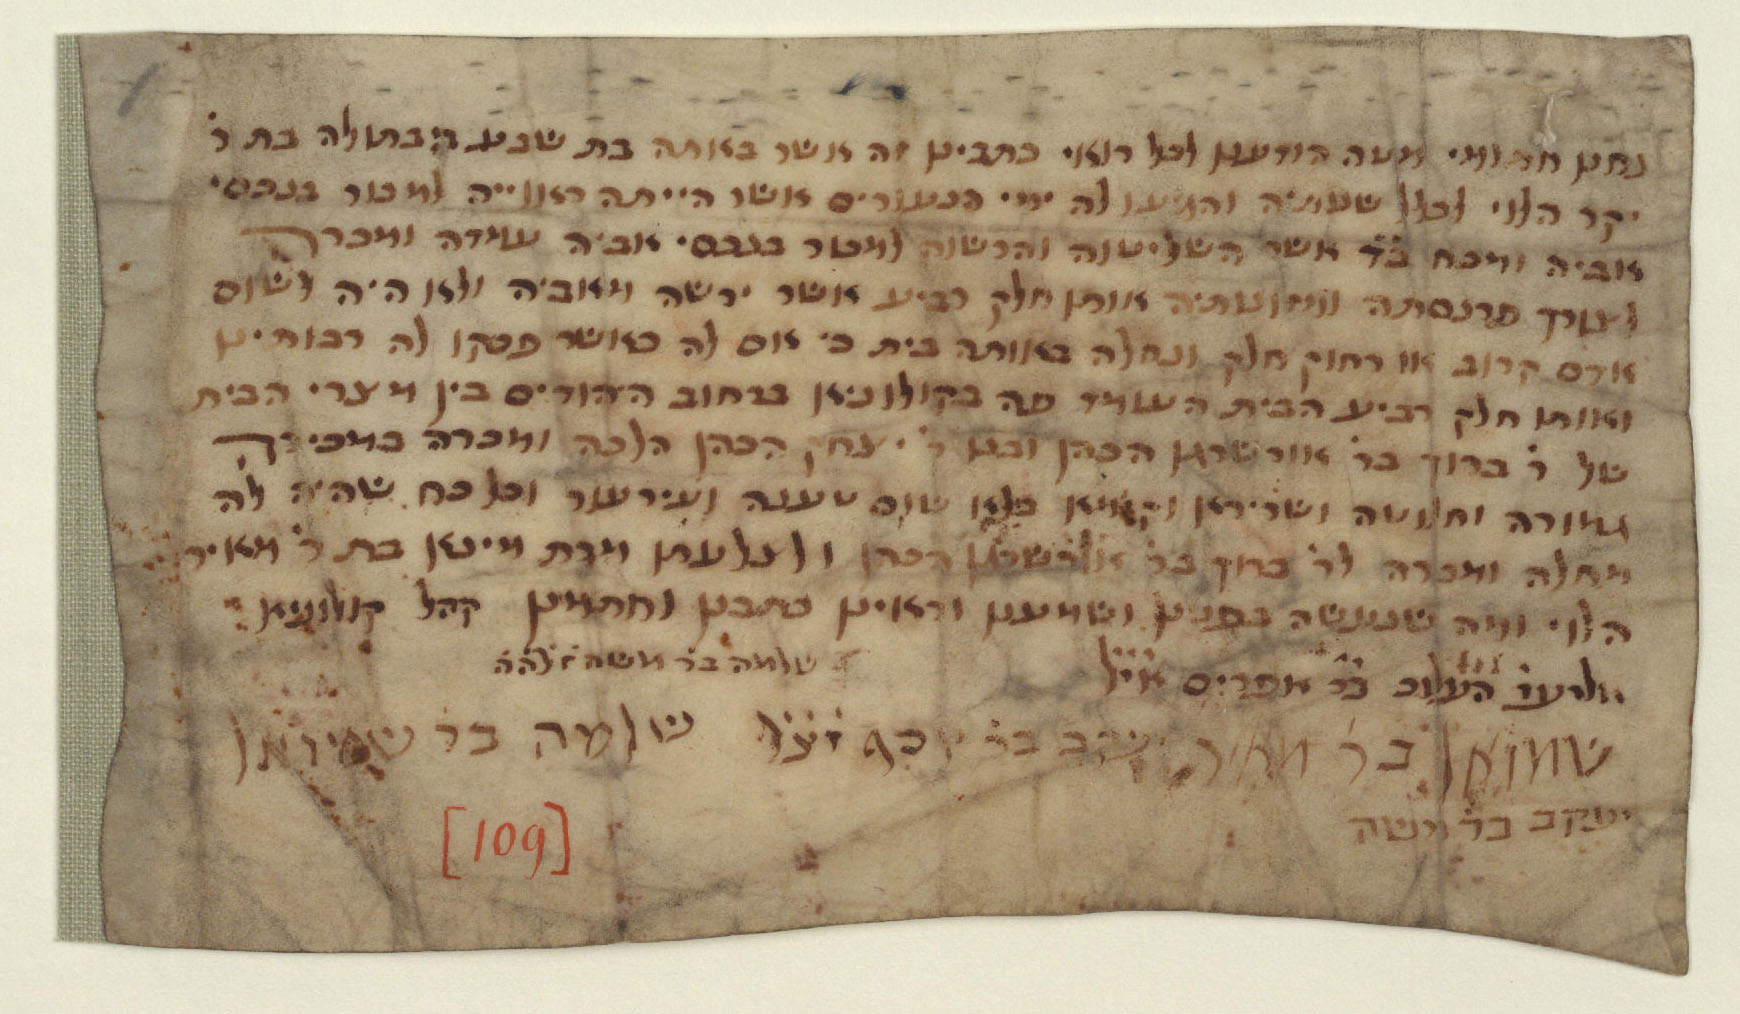 נחנו חתומי מטה הודענו לכל רואי כתבינו זה אשר באותה בת שבע הבתולה בת ר'
יקר הלוי לכלל שעתיה והגיעו לה ימי הנעורים אשר הייתה ראוייה למכור בנכסי
אביה ומכח ב"ד אשר השלישוה והרשוה למכור בנכסי אביה עמדה ומכרה
לצורך פרנסתה ומזונתיה אותו חלק רביע אשר ירשה מאביה ולא היה לשום
אדם קרוב או רחוק חלק ונחלה באותה בית כי אם לה כאשר פסקו לה רבותינו
ואותו חלק רביע הבית העומד פה בקולוניא ברחוב היהודים בין מצרי הבית
של ר' ברוך בר' אורשרגו הכהן ובנו ר' יצחק הכהן הלכה ומכרה במכירה
גמורה וחלוטה ושרירא וקיימא בלא שום טענה ועירעור וכל כח שהיה לה
מחלה ומכרה לר' ברוך בר' אורשרגו הכהן ולכלתו מרת מינא בת ר' מאיר
הלוי ומה שנעשה בפנינו ושמענו וראינו כתבנו וחתמנו קהל קולוניא
אלעזר העלוב בר' אפרים שלמה בר' משה
שמואל בר' מאיר יעקב בר' שלמה בר'
יעקב בר' משה
[109]